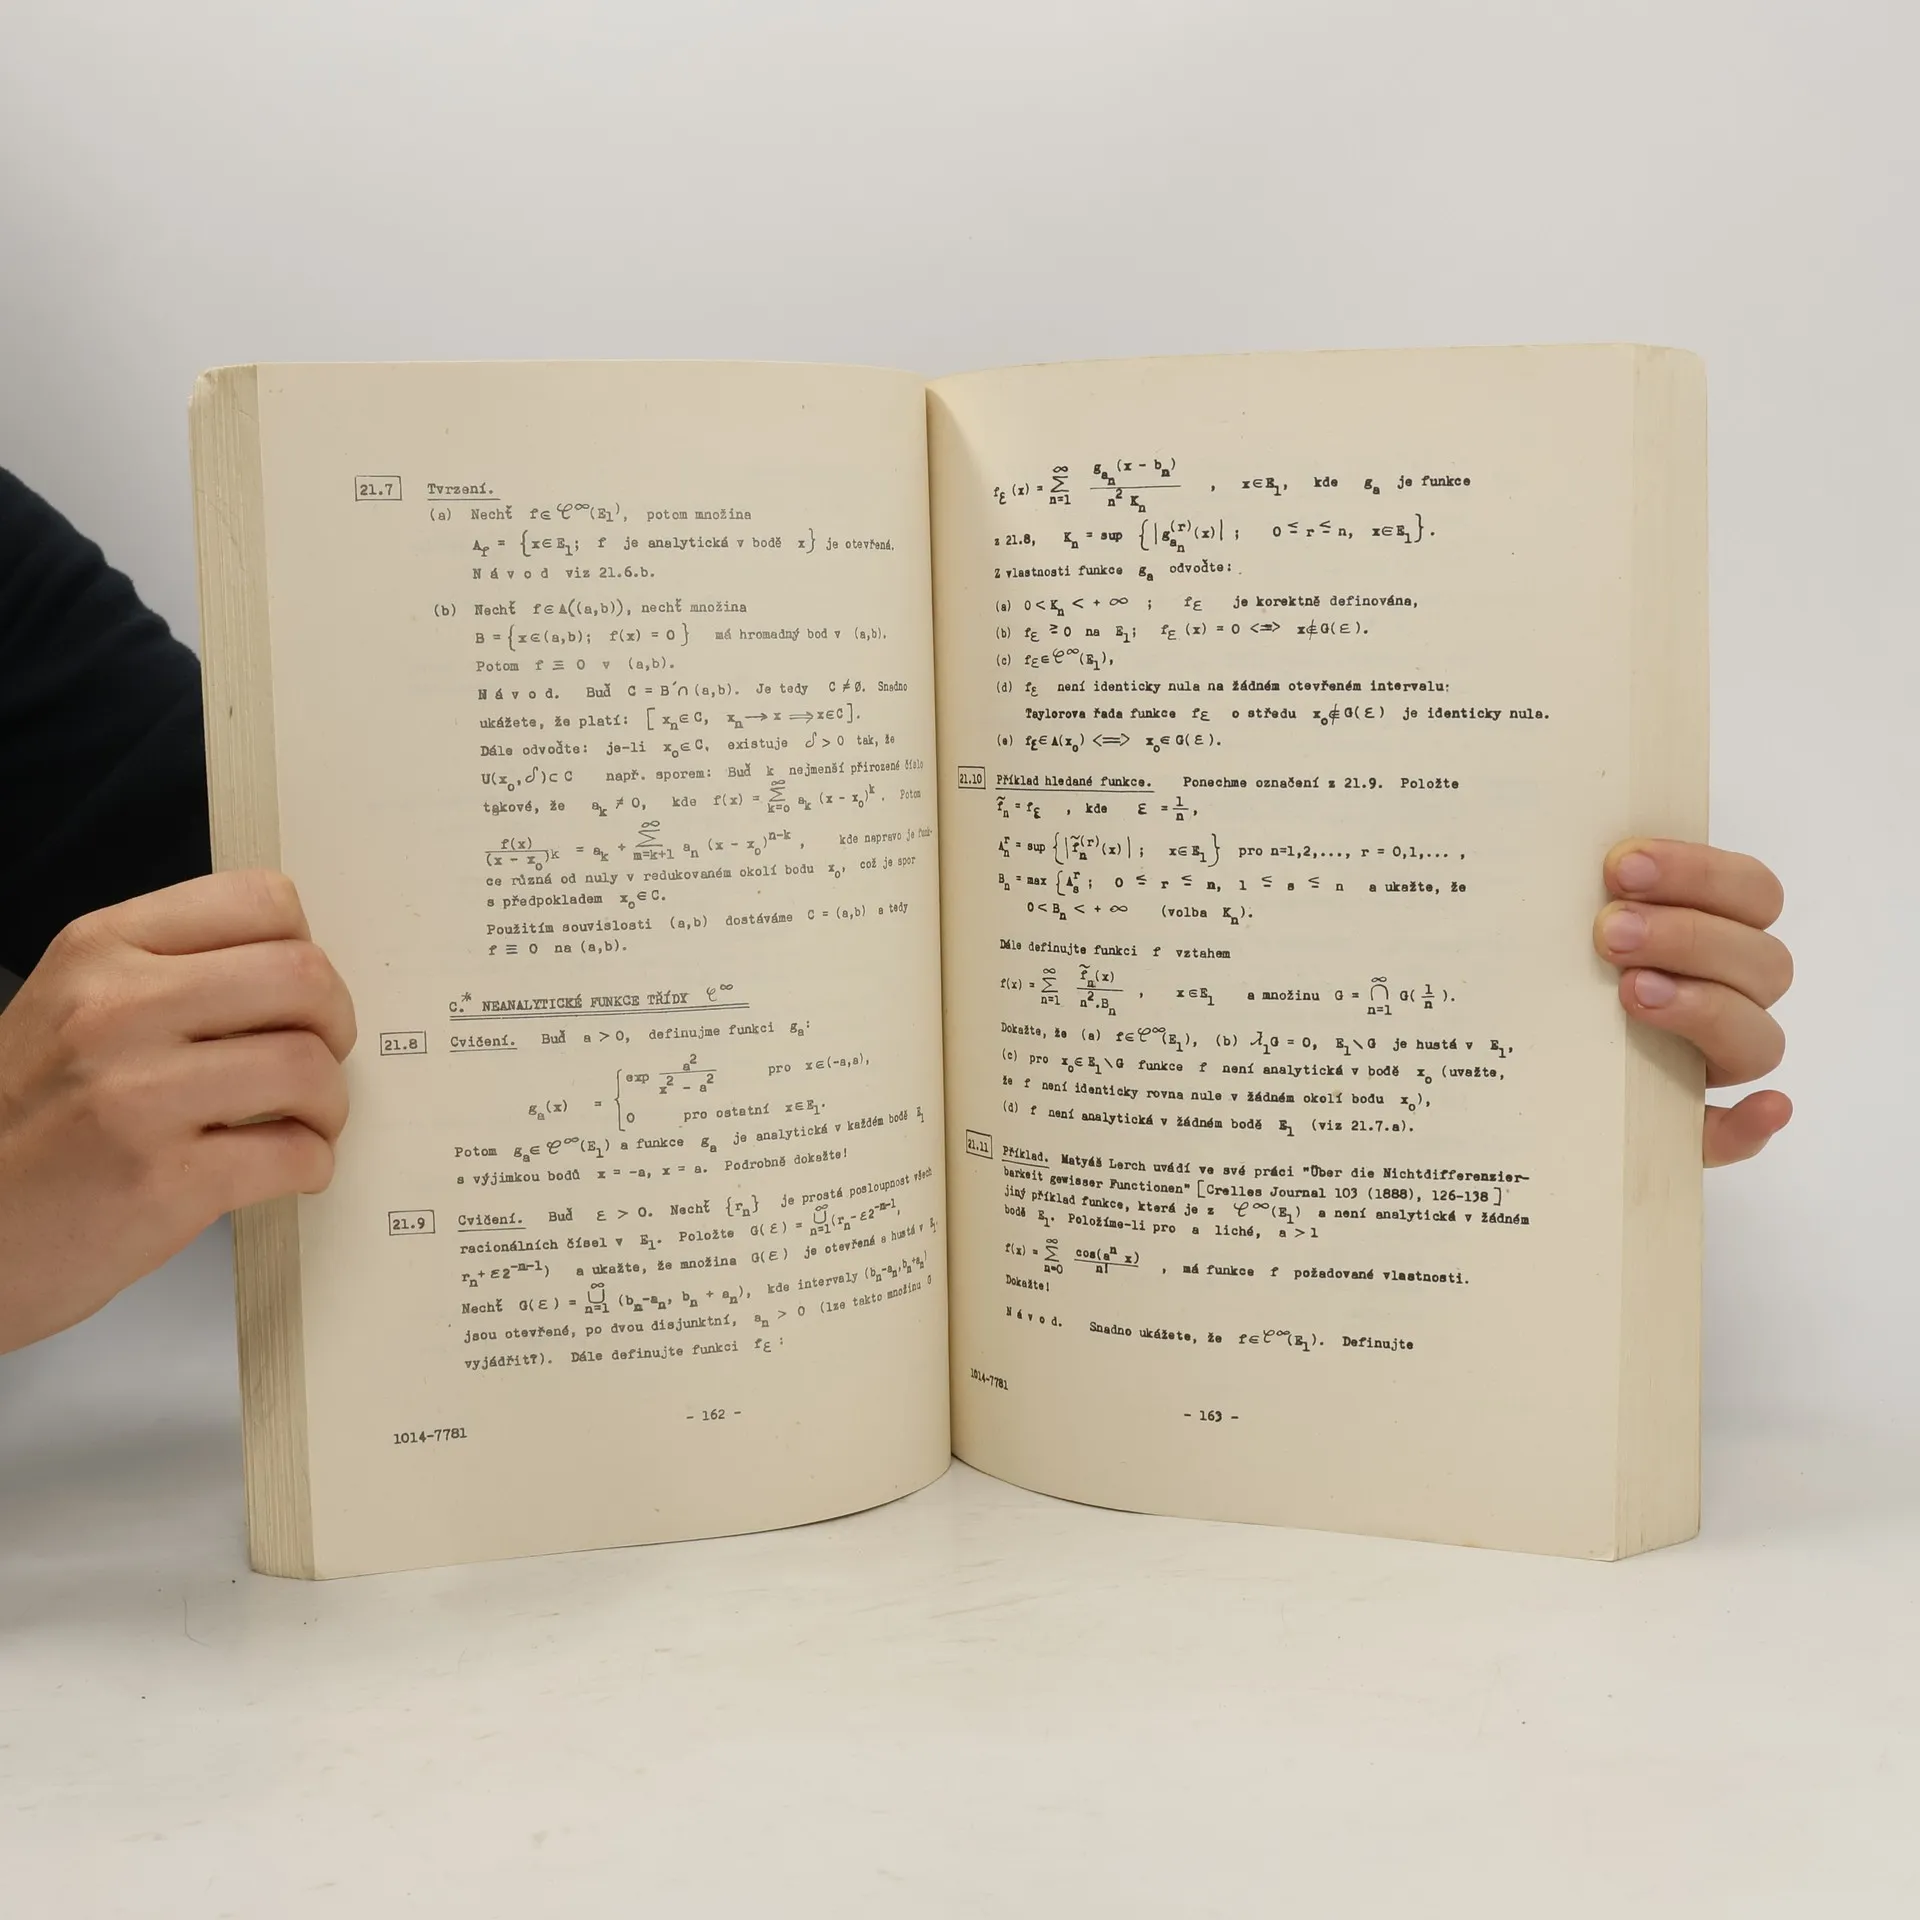 21.7 Tvrzení.
(a) Nechť f∈𝒞^∞(E₁), potom množina
A_f = {x∈E₁; f je analytická v bodě x} je otevřená.
N á v o d viz 21.6.b.
(b) Nechť f∈A((a,b)), nechť množina
B = {x∈(a,b); f(x) = 0} má hromadný bod v (a,b).
Potom f ≡ 0 v (a,b).
N á v o d. Buď C = B´∩(a,b). Je tedy C ≠ ∅. Snadno
ukážete, že platí: [x_n∈C, x_n→x ⟹x∈C].
Dále odvoďte: je-li x_o∈C, existuje δ > 0 tak, že
U(x_o,δ)⊂C např. sporem: Buď k nejmenší přirozené číslo
takové, že a_k ≠ 0, kde f(x) = ∑_{k=0}^∞ a_k (x - x_o)^k. Potom
f(x)/(x - x_o)^k = a_k + ∑_{m=k+1}^∞ a_n (x - x_o)^{n-k}, kde napravo je funk-
ce různá od nuly v redukovaném okolí bodu x_o, což je spor
s předpokladem x_o∈C.
Použitím souvislosti (a,b) dostáváme C = (a,b) a tedy
f ≡ 0 na (a,b).
C.* NEANALYTICKÉ FUNKCE TŘÍDY 𝒞^∞
21.8 Cvičení. Buď a > 0, definujme funkci g_a:
g_a(x) = { exp a²/(x² - a²) pro x∈(-a,a),
0 pro ostatní x∈E₁.
Potom g_a∈𝒞^∞(E₁) a funkce g_a je analytická v každém bodě E₁
s výjimkou bodů x = -a, x = a. Podrobně dokažte!
21.9 Cvičení. Buď ε > 0. Nechť {r_n} je prostá posloupnost všech
racionálních čísel v E₁. Položte G(ε) = ⋃_{n=1}^∞(r_n-ε2^{-n-1},
r_n+ε2^{-n-1}) a ukažte, že množina G(ε) je otevřená a hustá v E₁.
Nechť G(ε) = ⋃_{n=1}^∞ (b_n-a_n, b_n + a_n), kde intervaly (b_n-a_n,b_n+a_n)
jsou otevřené, po dvou disjunktní, a_n > 0 (lze takto množinu G
vyjádřit?). Dále definujte funkci f_ε:
- 162 -
1014-7781
f_ε(x) = ∑_{n=1}^∞ g_{a_n}(x - b_n)/(n² K_n), x∈E₁, kde g_a je funkce
z 21.8, K_n = sup {|g_{a_n}^{(r)}(x)|; 0 ≤ r ≤ n, x∈E₁}.
Z vlastnosti funkce g_a odvoďte:
(a) 0<K_n < + ∞ ; f_ε je korektně definována,
(b) f_ε ≥ 0 na E₁; f_ε(x) = 0 <=> x∉G(ε).
(c) f_ε∈𝒞^∞(E₁),
(d) f_ε není identicky nula na žádném otevřeném intervalu;
Taylorova řada funkce f_ε o středu x_o∉G(ε) je identicky nula.
(e) f_ε∈A(x_o) <=> x_o∈G(ε).
21.10 Příklad hledané funkce. Ponechme označení z 21.9. Položte
f̃_n = f_ε, kde ε = 1/n,
A_n^r = sup {|f̃_n^{(r)}(x)|; x∈E₁} pro n=1,2,..., r = 0,1,... ,
B_n = max {A_s^r; 0 ≤ r ≤ n, 1 ≤ s ≤ n a ukažte, že
0<B_n < + ∞ (volba K_n).
Dále definujte funkci f vztahem
f(x) = ∑_{n=1}^∞ f̃_n(x)/(n².B_n), x∈E₁ a množinu G = ⋂_{n=1}^∞ G(1/n).
Dokažte, že (a) f∈𝒞^∞(E₁), (b) λ₁G = 0, E₁∖G je hustá v E₁,
(c) pro x_o∈E₁∖G funkce f není analytická v bodě x_o (uvažte,
že f není identicky rovna nule v žádném okolí bodu x_o),
(d) f není analytická v žádném bodě E₁ (viz 21.7.a).
21.11 Příklad. Matyáš Lerch uvádí ve své práci "Über die Nichtdifferenzier-
barkeit gewisser Functionen" [Crelles Journal 103 (1888), 126-138]
jiný příklad funkce, která je z 𝒞^∞(E₁) a není analytická v žádném
bodě E₁. Položíme-li pro a liché, a > 1
f(x) = ∑_{n=0}^∞ cos(a^n x)/n!, má funkce f požadované vlastnosti.
Dokažte!
N á v o d. Snadno ukážete, že f∈𝒞^∞(E₁). Definujte
1014-7781
- 163 -